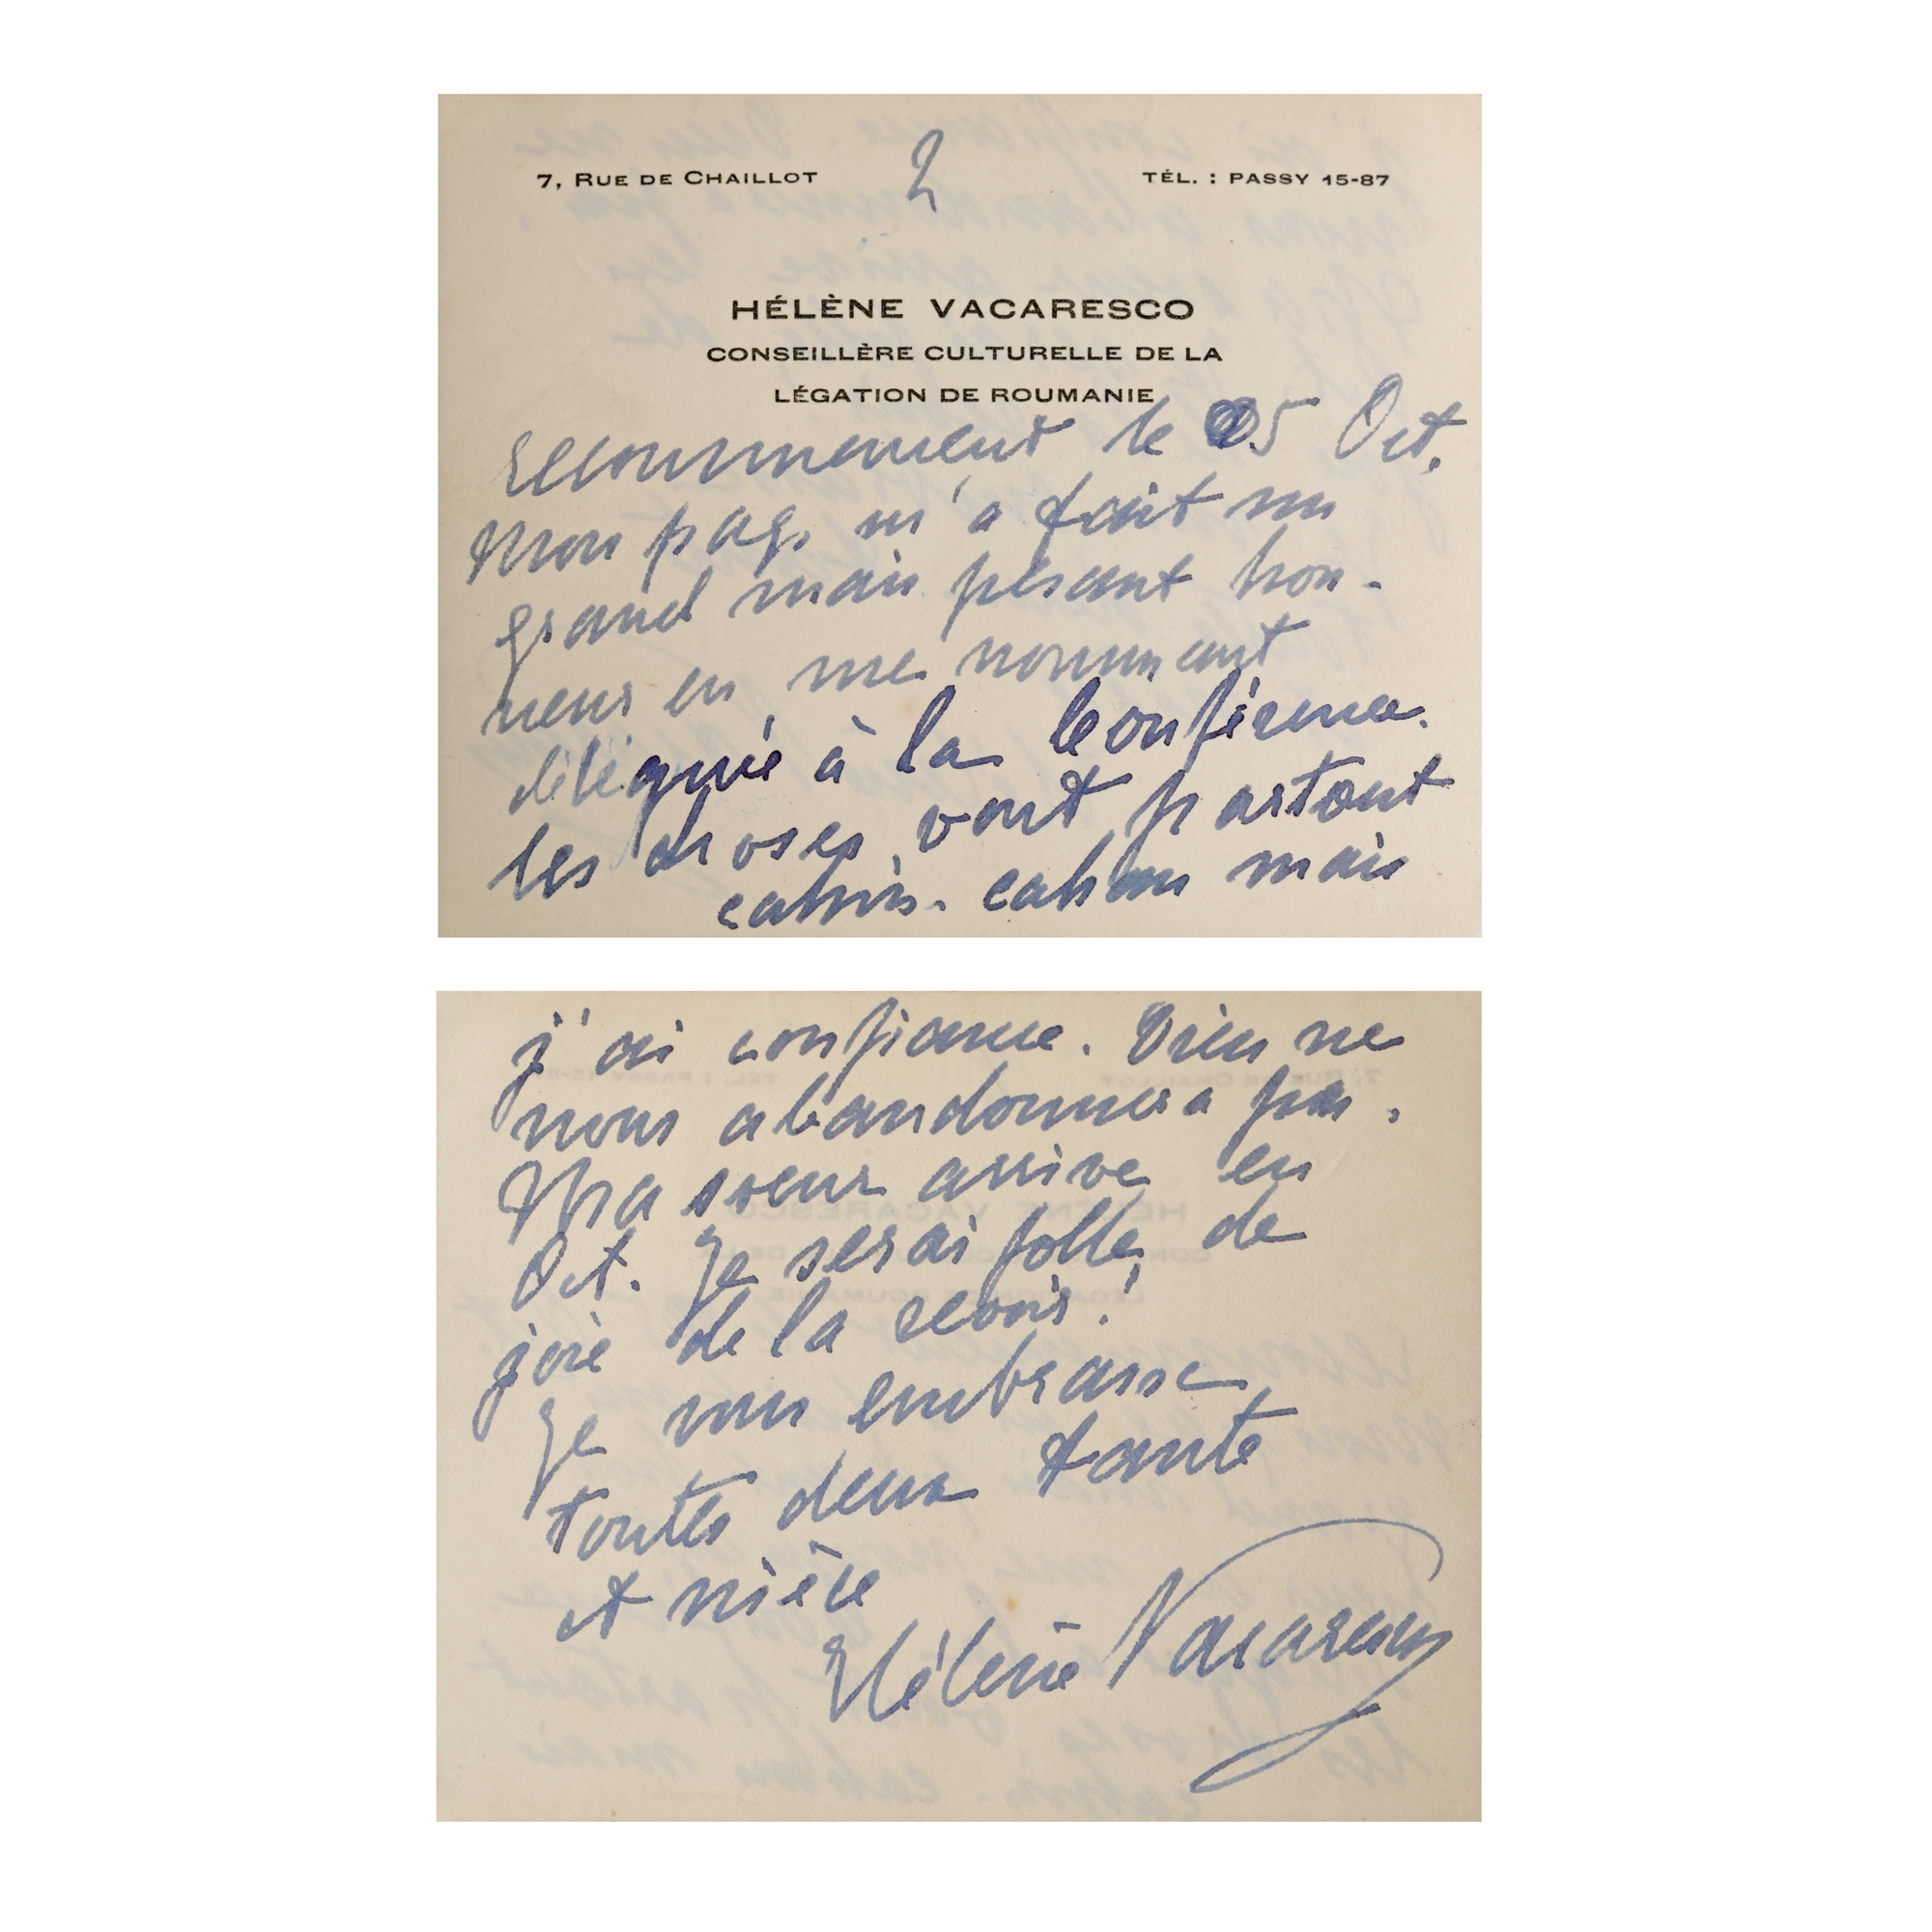 7, RUE DE CHAILLOT 2 TÉL. : PASSY 15-87
HÉLÈNE VACARESCO
CONSEILLÈRE CULTURELLE DE LA
LÉGATION DE ROUMANIE
recommencent le 5 Oct.
Mon pays m'a fait un
grand mais pesant hon-
neur en me nommant
déléguée à la Conférence.
les choses vont partout
cahin-cahan mais
j'ai confiance. Dieu ne
nous abandonnera pas.
Ma soeur arrive en
Oct. Je serai folle de
joie de la revoir!
Je vous embrasse
toutes deux tante
et nièce
Hélène Vacaresco